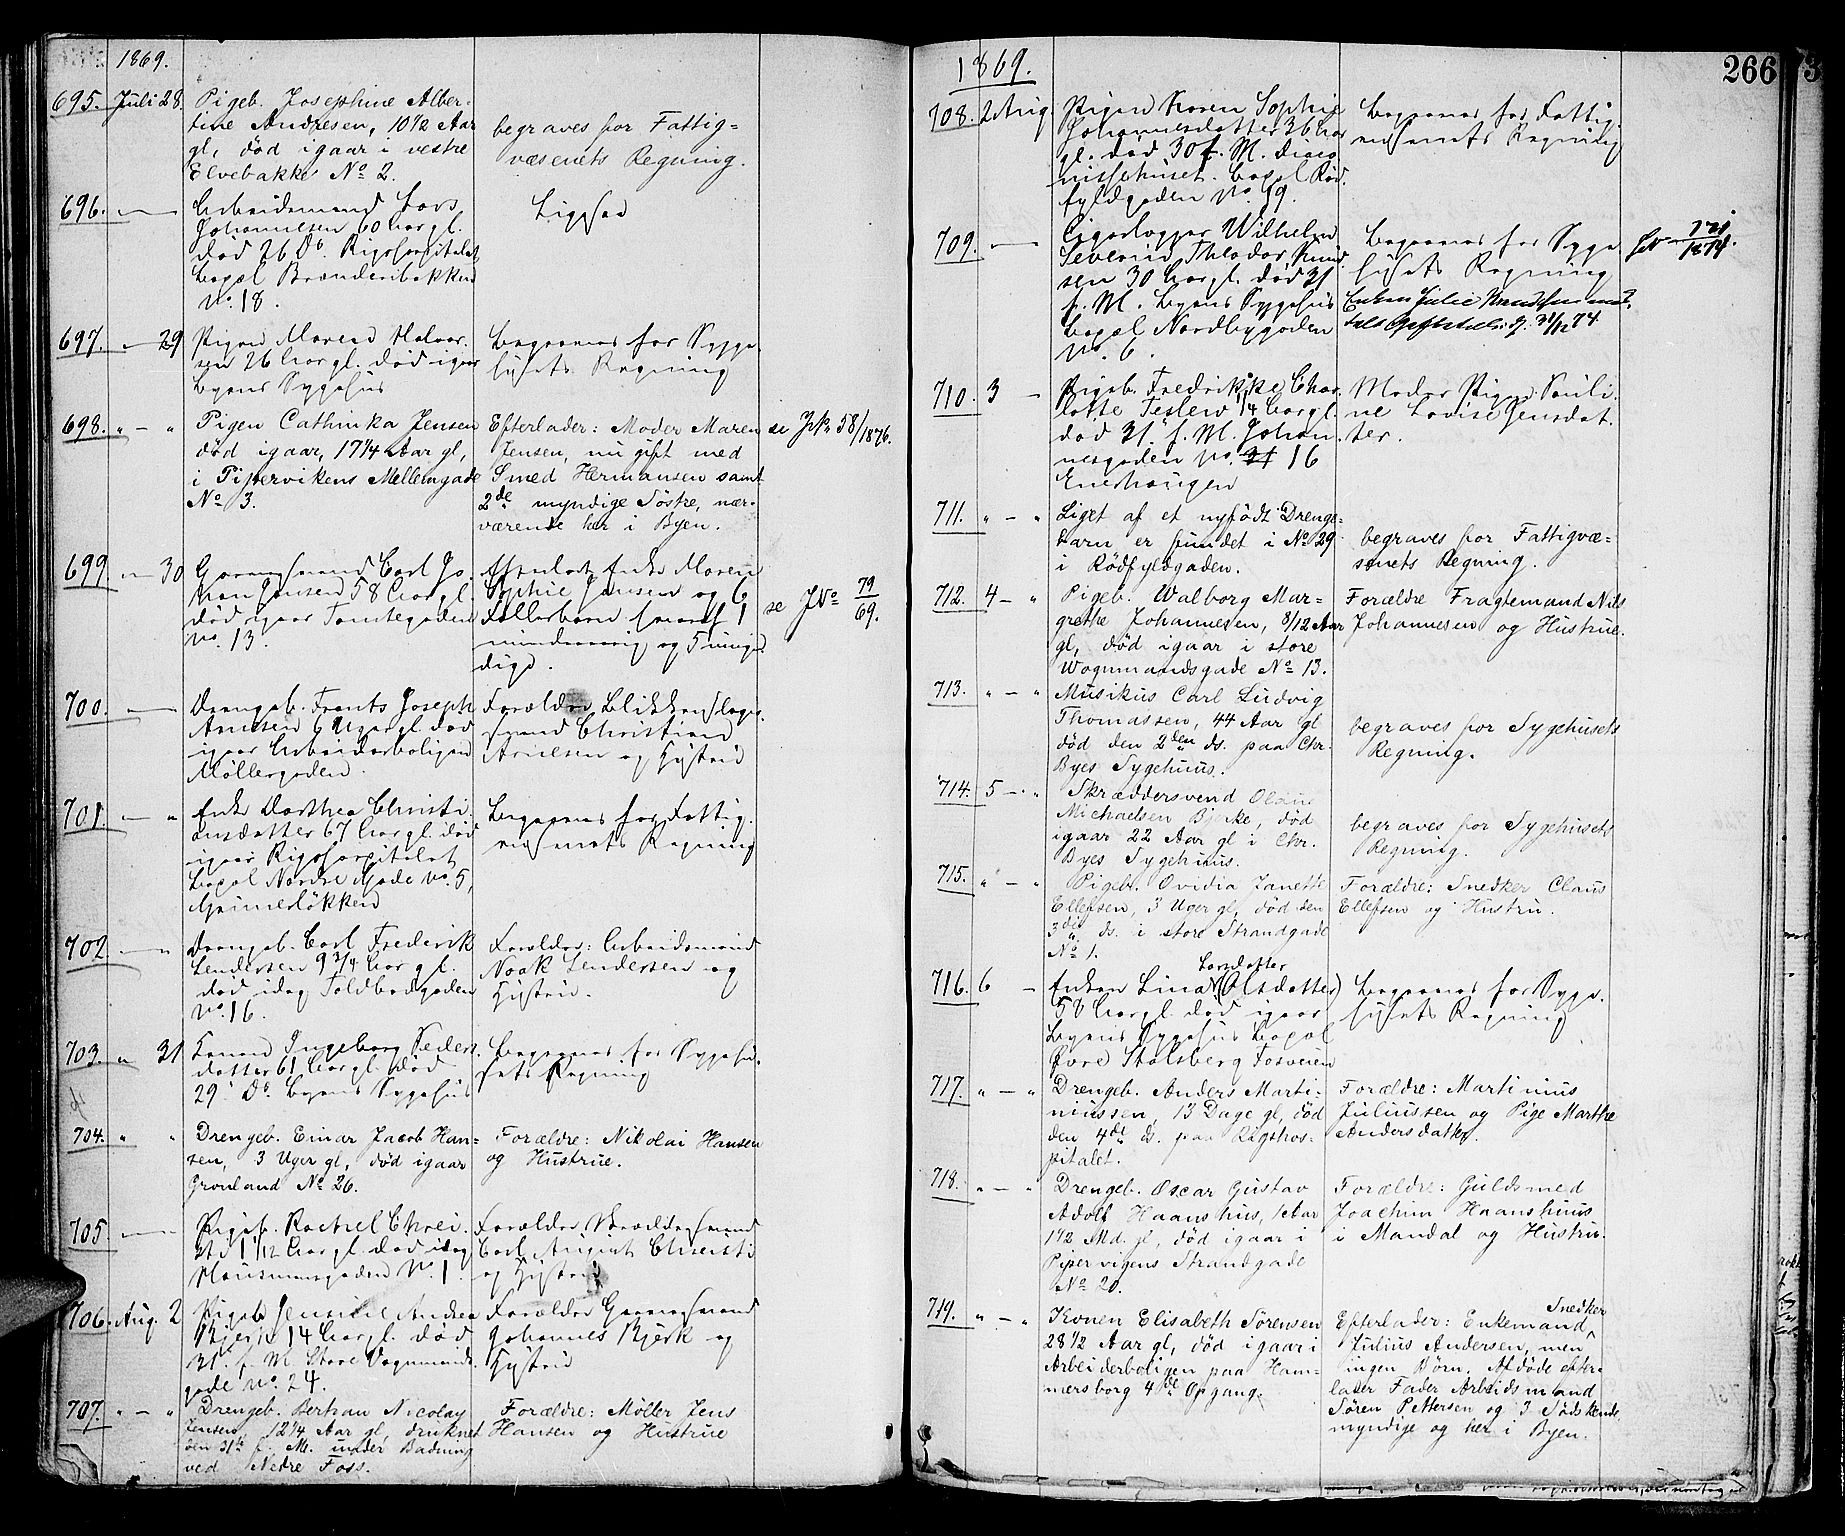 1869.
695. Juli 28. Pigeb. Josephine Alber-
tine Andresen, 10 1/2 Aar
gl, död igaar i vestre
Elvebakke No 2.
begraves for Fattig=
væsenets Regning.
696. Arbeidsmand Lars
Johannesen 60 Aar gl.
död 26 Ds. Rigshospitalet
Bopæl Brænderibakken
No. 18.
697. 29 Pigen Maren Halvor-
sen 26 Aar gl. död igaar
Byens Sygehus
Begraves for Syge-
husets Regning
698. Pigen Cathinka Jensen
död igaar, 17 1/4 Aar gl,
i Pipervikens Mellemgade
No 3.
Efterlader: Moder Maren
Jensen, nu gift med
Smed Hermansen samt
2de myndige Söstre, nær-
værende her i Byen.
se 58/1876.
699 30 Carl Jo-
han Jensen 58 Aar gl.
död igaar Tomtegaden
No. 13.
Efterladt Enke Maren
Sophie Jensen og 6
Fællesbørn hvoraf 1
mindreaarig og 5 myn-
dige.
se JNo 79/69.
700. Drengeb. Frants Joseph
Arnesen 6 Uger gl. död
igaar Arbeiderboligen
Møllergaden.
Forældre Blikkenslager-
svend Christian
Arnesen og Hustru
701. Enke Dorthea Christi-
ansdatter 67 Aar gl. död
igaar Rigshospitalet
Bopæl Nordre Gade No. 5,
Grünerløkken
Begraves for Fattig-
væsenets Regning
702. Drengeb. Carl Frederik
Sendersen 9 3/4 Aar gl.
död idag Toldbodgaden
No. 16.
Forældre: Arbeidsmand
Noak Sendersen og
Hustru.
703. 31 Konen Ingeborg Peders-
datter 61 Aar gl. död
29. Ds. Byens Sygehus
Begraves for Sygehu-
sets Regning
704. Drengeb. Einar Jacob Han-
sen, 3 Uger gl, död igaar
Grönland No 26.
Forældre: Nikolai Hansen
og Hustrue.
705 Pigeb. Rachel Chri-
1 1/12 Aar gl. död idag
Hausmannsgaden No. 1.
Forældre
Carl August Christi
og Hustru
706. Aug. 2 Pigeb. Jensine Andrea
Bjerk 14 Aar gl. död
31. f. M. Store Vognmands-
gade No. 24.
Forældre
Johannes Bjerk og
Hustru
707. Drengeb. Bertran Nicolay
Jensen, 12 1/4 Aar gl, druknet
den 31te f. M. under Badning
ved Nedre Foss.
Forældre: Møller Jens
Hansen og Hustrue
1869.
266
708. 2 Aug. Pigen Karen Sophie
Johannesdatter 36 Aar
gl. død 30 f. M. Diaco-
nissehuset. Bopæl Rød-
fyldgaden No. 39.
Begraves for Fattig-
væsenets Regning
709. Cigarlægger Wilhelm
Severin Theodor Knud-
sen 30 Aar gl. død 31
f. M. Byens Sygehus
Bopæl Nordbygaden
No. 6.
Begraves for Syge-
husets Regning
Enken Julie Knudsen
31/12 74.
710. 3 Pigeb. Fredrikke Char-
lotte Teslew 14 Aar gl.
död 31. f. M. Johan-
nesgaden No. 16
Enerhaugen
Moder Pige Pauli-
ne Lovise Jensdat-
ter.
711. Liget af et nyfödt Drenge-
barn er fundet i No 29
i Rödfyldgaden.
begraves for Fattigvæ=
senets Regning.
712. 4 Pigeb. Walborg Mar-
grethe Johannesen, 8/12 Aar
gl, död igaar i store
Wognmandsgade No 13.
Forældre Fragtemand Nils
Johannesen og Hustrue.
713. Musikus Carl Ludvig
Thomassen, 44 Aar gl
död den 2den ds. paa Chr.
Byes Sygehuus.
begraves for Sygehusets
Regning.
714. 5 Skræddersvend Olaus
Michaelsen Bjerke, död
igaar 22 Aar gl i Chr.
Byes Sygehuus.
begraves for Sygehusets
Regning.
715. Pigeb. Ovidia Janette
Ellefsen, 3 Uger gl, död den
3die ds. i store Strandgade
No 1.
Forældre: Snedker Claus
Ellefsen og Hustru.
716. 6 Enken Lina Larsdatter (Olsdatter)
58 Aar gl. død igaar
Byens Sygehus Bopæl
Øvre Stolsberg Fosveien
Begraves for Syge-
husets Regning
717. Drengeb. Anders Marti-
niussen, 13 Dage gl, död
den 4de ds. paa Rigshos-
pitalet.
Forældre: Martinius
Juliussen og Pige Marthe
Andersdatter.
718. Drengeb. Oscar Gustav
Adolf Haanshus, 1 Aar
1 1/2 Md. gl, död igaar i
Pipervigens Strandgade
No 20.
Forældre: Guldsmed
Joachim Haanshuus
i Mandal og Hustru.
719. Konen Elisabeth Sörensen
28 1/2 Aar gl, död igaar i
Arbeiderboligen paa Ham-
mersborg 4de Opgang.
Efterlader: Enkemand, Snedker
Julius Andersen, men
ingen Börn. Afdöde efter-
lader Fader Arbeidsmand
Sören Pettersen og 3 Södskende
myndige og her i Byen.